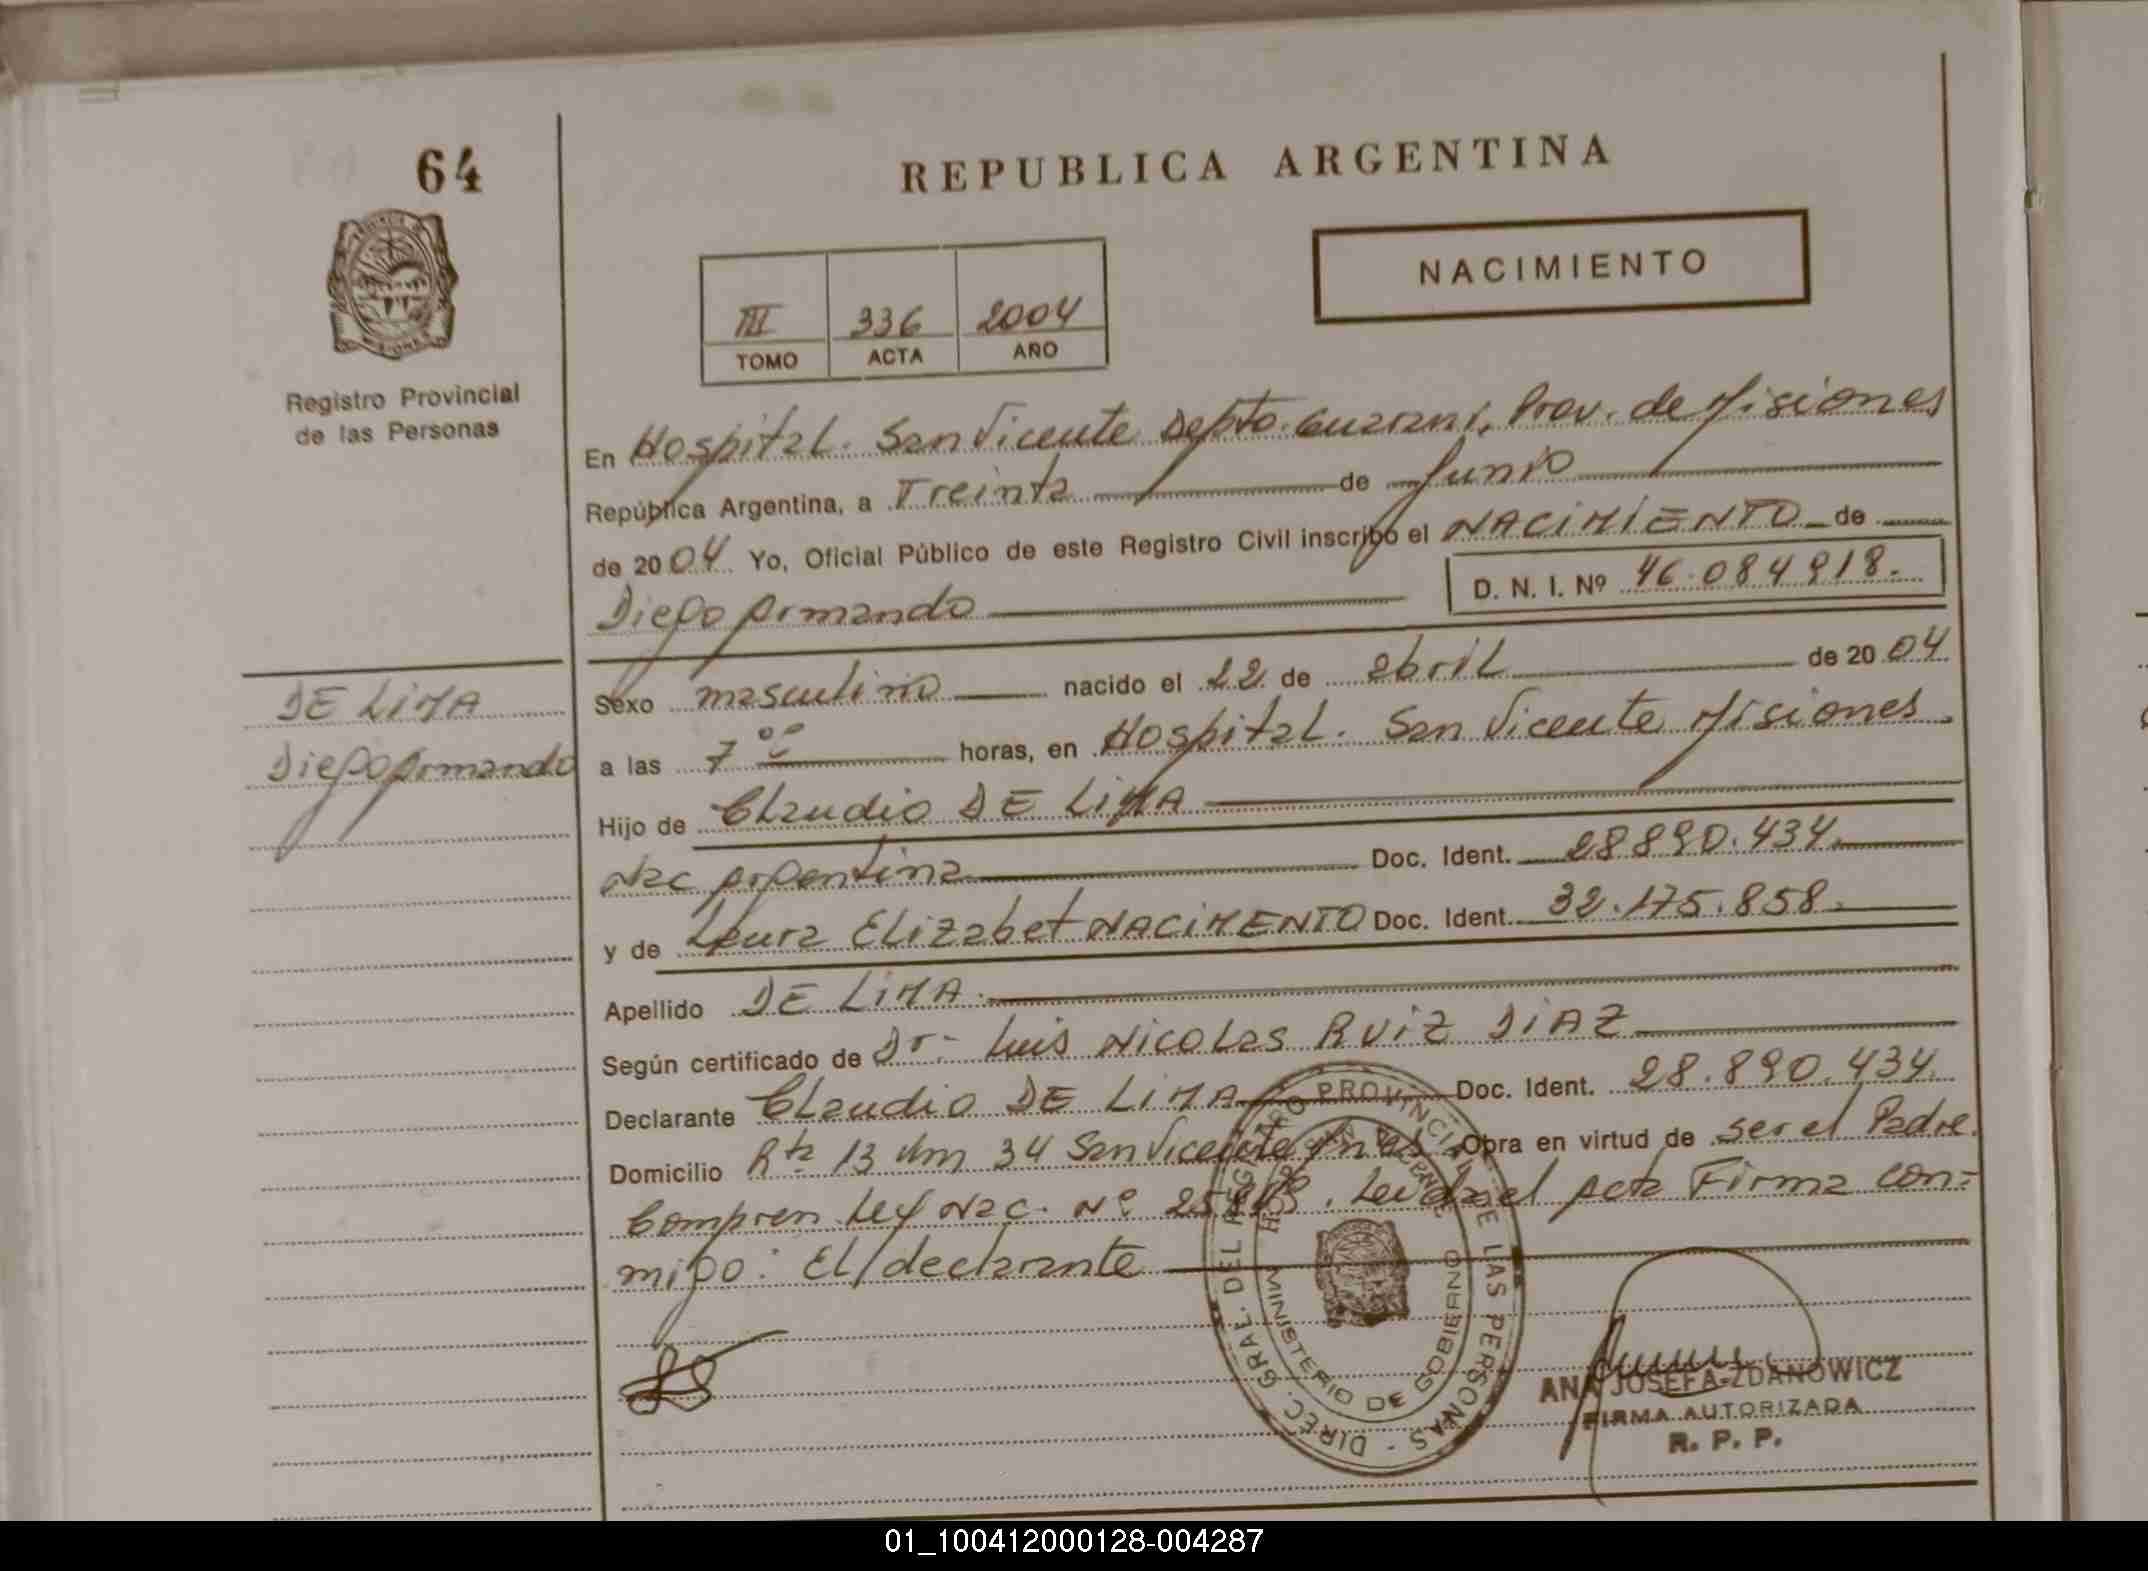 64
REPUBLICA ARGENTINA
NACIMIENTO
III 336 2004
TOMO ACTA AÑO
Registro Provincial
de las Personas
En Hospital. San Vicente Depto. Guarani, Prov. de Misiones
República Argentina, a Treinta de Junio
de 2004 Yo, Oficial Público de este Registro Civil inscribo el NACIMIENTO de
Diego Armando D. N. I. Nº 46.084918.
DE LIMA
Diego Armando
Sexo masculino nacido el 22 de abril de 2004
a las 7 oo horas, en Hospital. San Vicente Misiones.
Hijo de Claudio DE LIMA
Nac Argentina Doc. Ident. 28890.434.
y de Laura Elizabet NACIMENTO Doc. Ident. 32.175.858.
Apellido DE LIMA.
Según certificado de Dr- Luis Nicolas RUIZ DIAZ
Declarante Claudio DE LIMA Doc. Ident. 28.890.434.
Domicilio Rta 13 Km 34 San Vicente Mnes. Obra en virtud de ser el Padre.
Compren Ley Nac. Nº Leida el Acta Firma con=
migo: El declarante
DIREC. GRAL. DEL REGISTRO PROVINCIAL DE LAS PERSONAS -
MINISTERIO DE GOBIERNO
SAN VICENTE
ANA JOSEFA ZDANOWICZ
FIRMA AUTORIZADA
R. P. P.
01_100412000128-004287